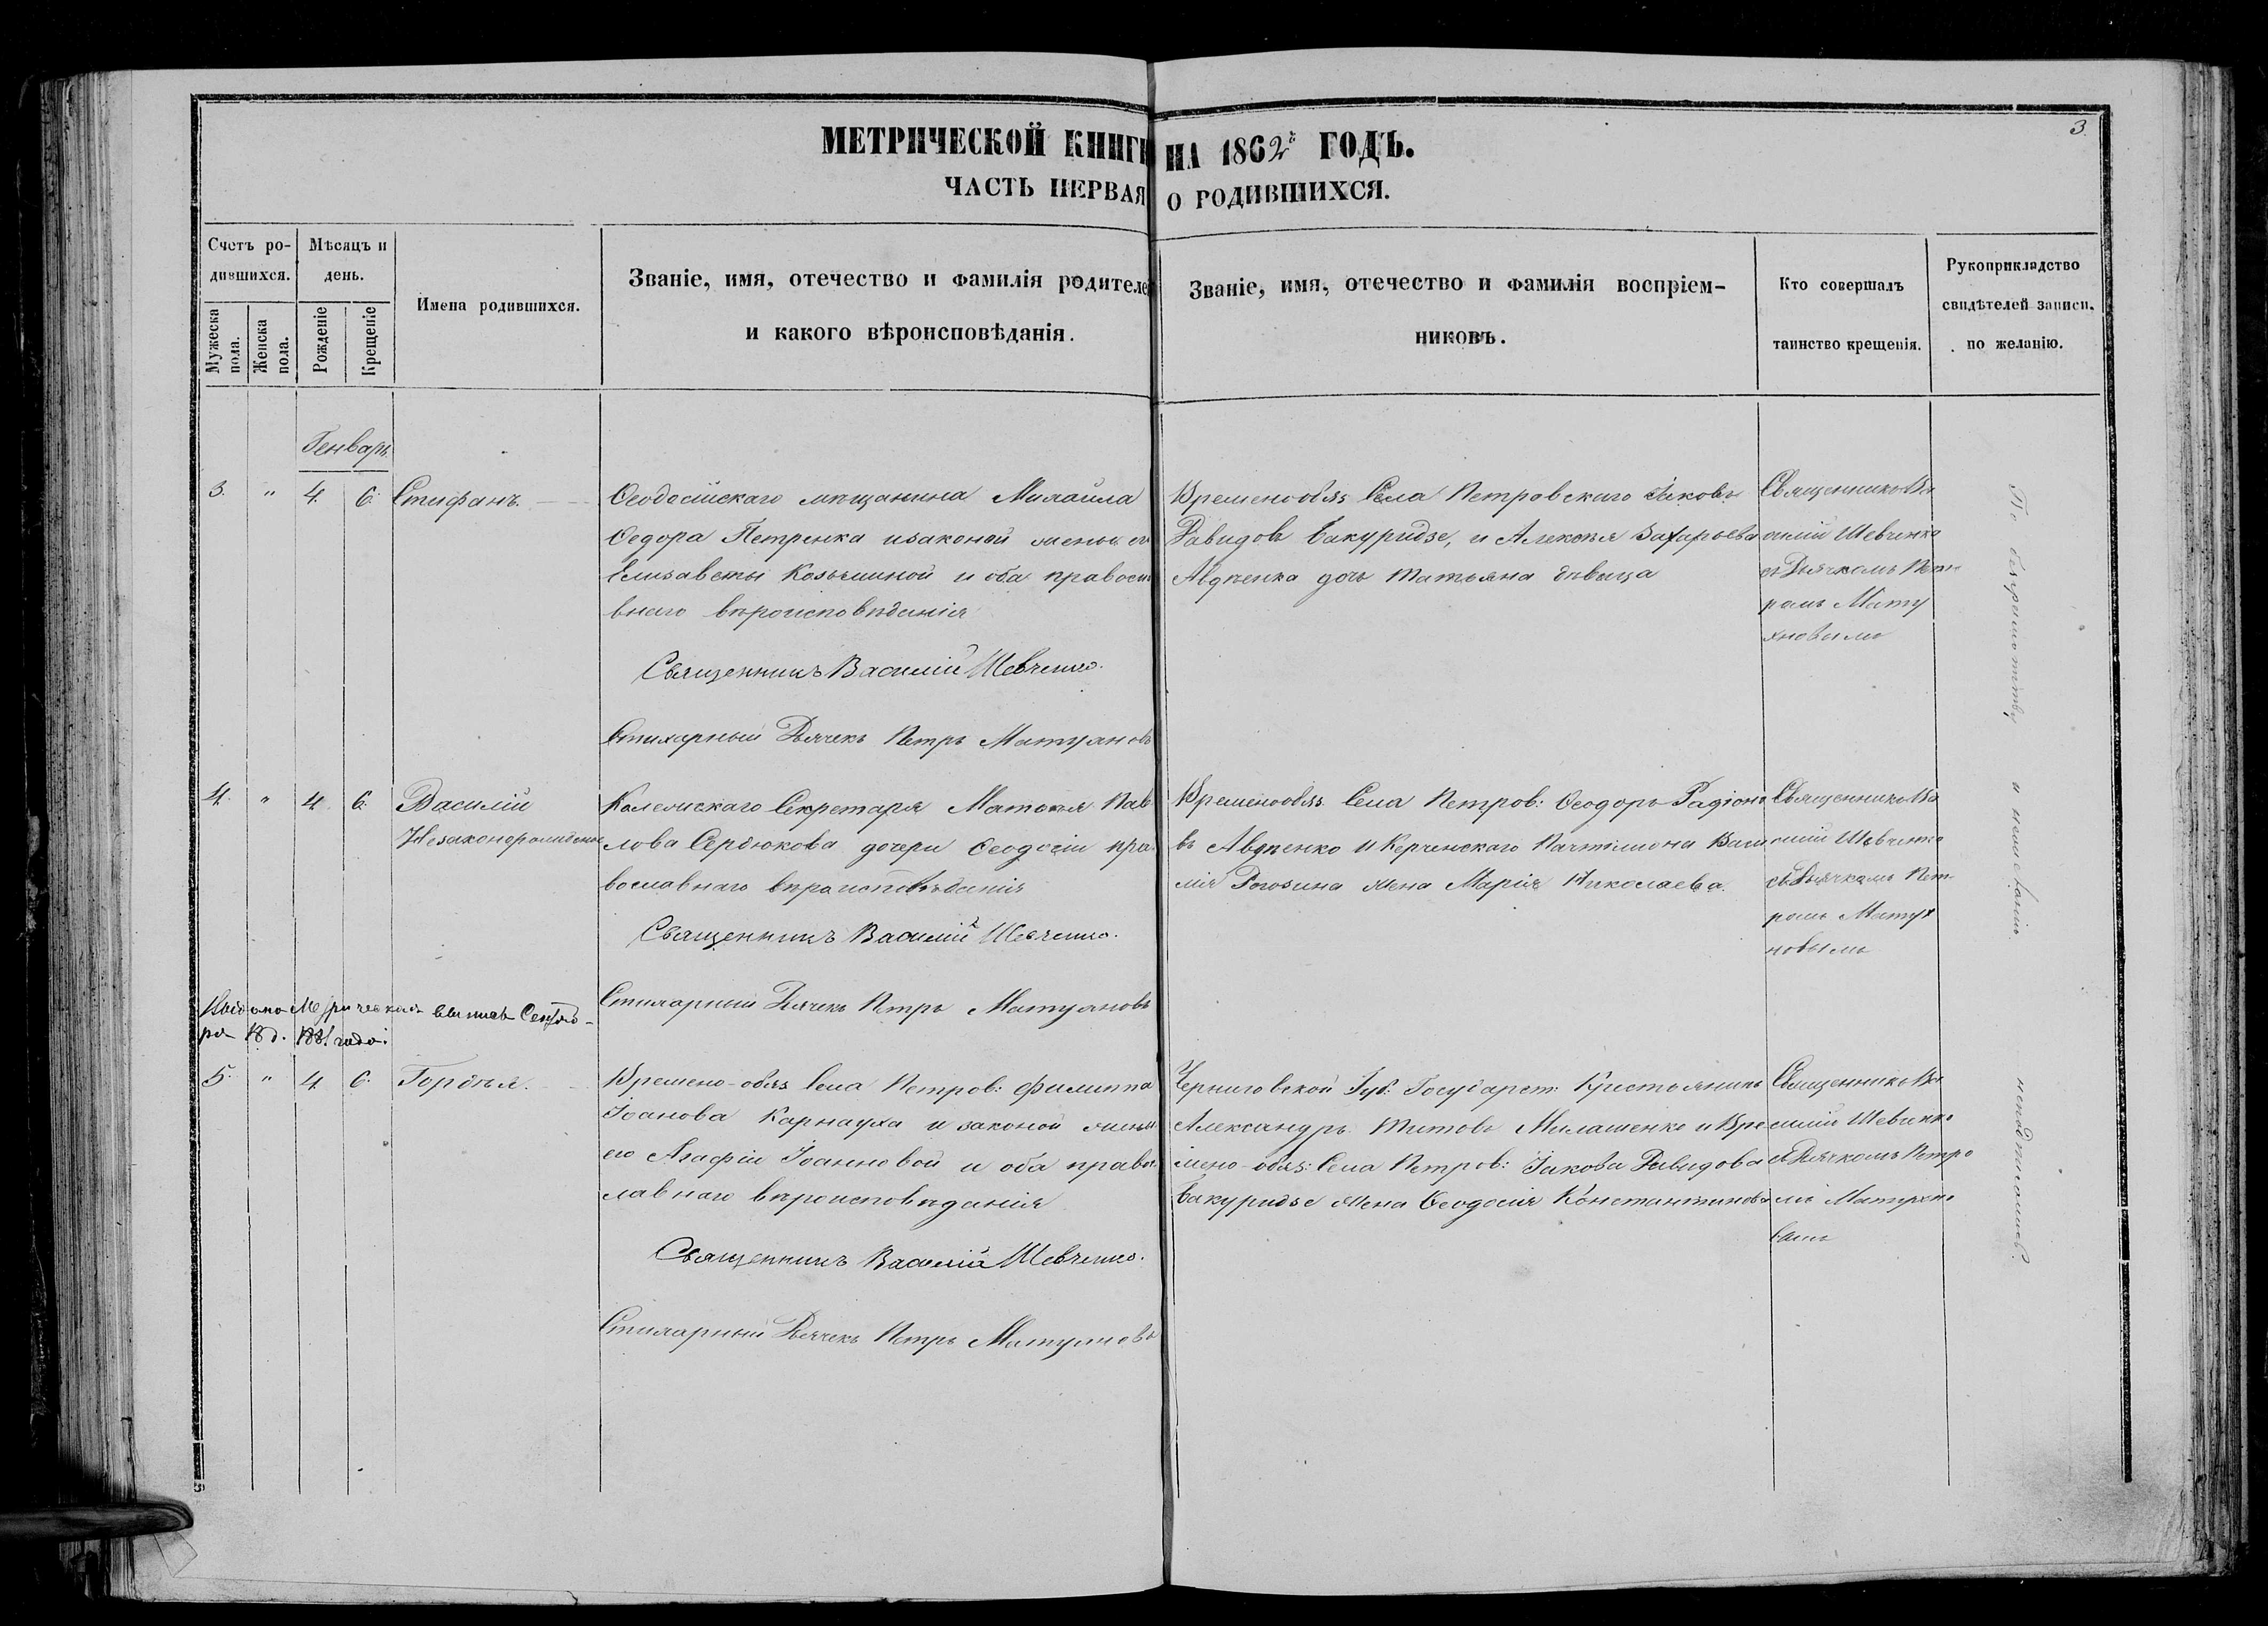 3.
МЕТРИЧЕСКОЙ КНИГИ НА 1862й ГОДЪ.
ЧАСТЬ ПЕРВАЯ О РОДИВШИХСЯ.
Счетъ родившихся.
Мужеска пола.
Женска пола.
Мѣсяцъ и день.
Рожденіе
Крещеніе
Имена родившихся.
Званіе, имя, отечество и фамилія родителей
и какого вѣроисповѣданія.
Званіе, имя, отечество и фамилія воспріем-
никовъ.
Кто совершалъ
таинство крещенія.
Рукоприкладство
свидѣтелей записи.
по желанію.
Генварь
3. " 4. 6. Стифанъ.
Ѳеодосійскаго мѣщанина Михаила
Ѳедора Петренка изаконой жены ег
Елизаветы Козьминой и оба правосл
внаго вѣроисповѣданія
Священникъ Василій Шевченко.
Стихарный Дячекъ Петръ Матухновъ
Временообяз Села Петровскаго Іаковъ
Давидовъ Бакуридзе, и Алексѣя Захарьева
Авдѣенка дочь Татьяна дѣвица
Священникъ Ва
силій Шевченко
съ Дячкомъ Пет
ромъ Мату
хновымъ
4. " 4. 6. Василій
Незаконорожденъ
Колежскаго Секретаря Матвѣя Пав
лова Сердюкова дочери Ѳеодосіи пра
вославнаго вѣроисповѣданія
Священникъ Василій Шевченко.
Стихарный Дячекъ Петръ Матухновъ
Временообяз. Села Петров: Ѳеодоръ Радіоно
въ Авдѣенко и Керченскаго Васи
лія Рогозина жена Марія Николаева.
Священникъ Ва
силій Шевченко
съ Дьячкомъ Пет
ромъ Матух
новымъ
Выдана Метрическая выпись Сентяб-
ря 18 д. 1881 года:
5. " 4. 6. Гордѣй.
Времено-обяз Села Петров: Филиппа
Іоанова Карнауха и законой жены
его Агафіи Іоанновой и оба правос
лавнаго вѣроисповѣданія
Священникъ Василій Шевченко.
Стихарный Дячекъ Петръ Матухновъ
Черниговской Губ: Государст: Кристьянинъ
Александръ Титовъ Милашенко и Вре
мено-обяз: Села Петров: Іакова Давидова
Бакуридзе жена Ѳеодосія Константинова
Священникъ Ва
силій Шевченко
съ Дячкомъ Петро
мъ Матухно
вымъ
По безграмотству и неимѣнію